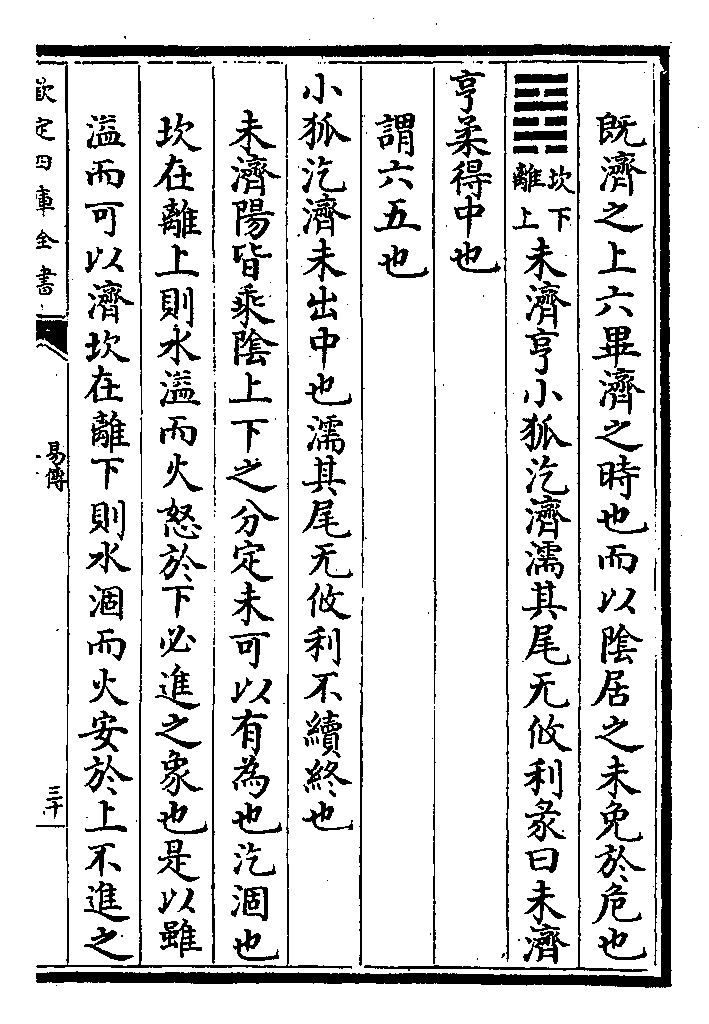 既濟之上六畢濟之時也而以陰居之未免於危也
䷿坎下離上未濟亨小狐汔濟濡其尾无攸利彖曰未濟
亨柔得中也
謂六五也
小狐汔濟未出中也濡其尾无攸利不續終也
未濟陽皆乘陰上下之分定未可以有為也汔涸也
坎在離上則水溢而火怒於下必進之象也是以雖
溢而可以濟坎在離下則水涸而火安於上不進之
欽定四庫全書
易傳
三十